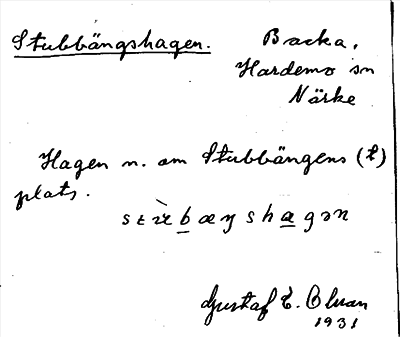 Stubbängshagen. Backa,
Hardemo sn
Närke
Hagen n. om Stubbängens (t)
plats.
Gustaf T. Ohman
1931